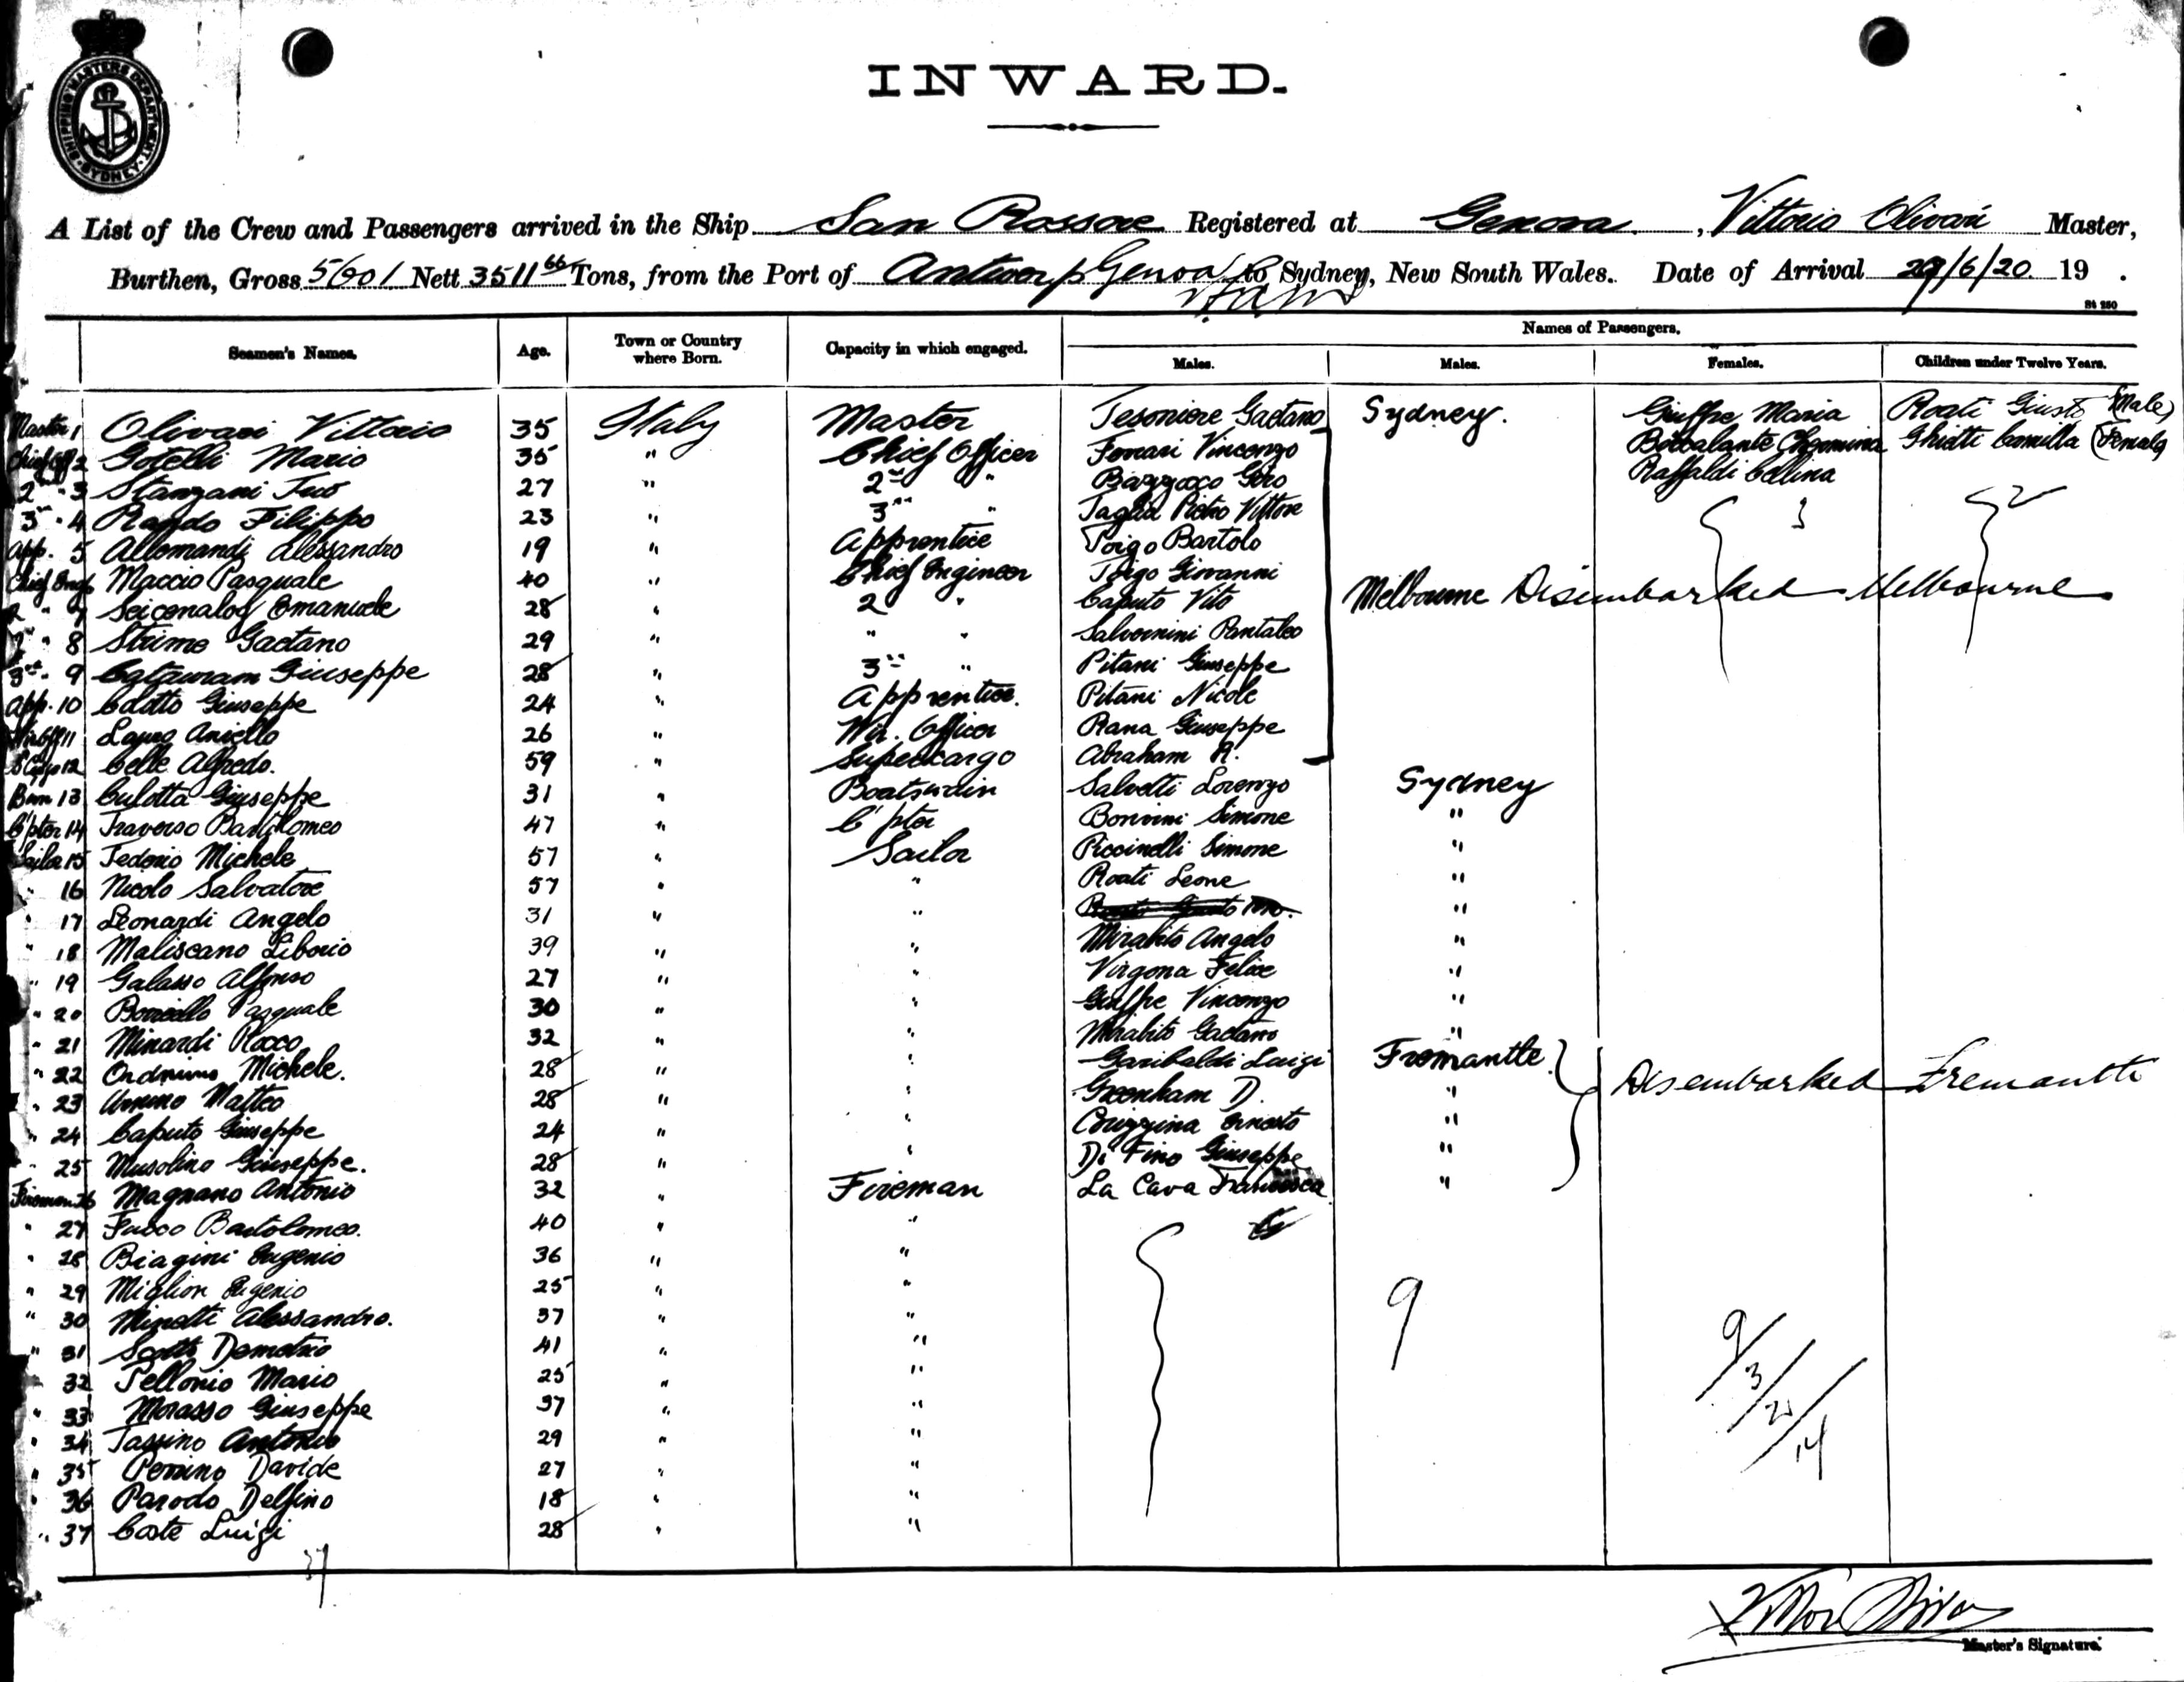 SHIPPING MASTERS DEPARTMENT. SYDNEY
INWARD.
A List of the Crew and Passengers arrived in the Ship San Rossore Registered at Genova, Vittorio Olivari Master,
Burthen, Gross Nett 3511 66 Tons, from the Port of Antwerp Genoa to Sydney, New South Wales. Date of Arrival 29/6/20 19 .
St 250
Names of Passengers.
Seamen's Names. Age. Town or Country where Born. Capacity in which engaged. Males. Males. Females. Children under Twelve Years.
Master 1 Olivari Vittorio 35 Italy Master Tesoriere Gaetano Sydney. Giuffre Maria Roati Giusto (Male)
Chief Off 2 Gotelli Mario 35 " Chief Officer Ferrari Vincenzo Ghiatti Camilla (Female)
2nd " 3 Stanzani 27 " 2nd " Bazzocco Giro Raffaldi Cellina
3rd " 4 Filippo 23 " 3rd " Taglia Pietro Vittore 3 2
App. 5 Allemandi Alessandro 19 " Apprentice Toigo Bartolo
Chief Eng 6 Maccio Pasquale 40 " Chief Engineer Toigo Giovanni
2 " 7 Emanuele 28 " 2 " Caputo Vito Melbourne Disembarked Melbourne
" 8 Gaetano 29 " " " Pantaleo
3rd " 9 Giuseppe 28 " 3rd " Pitani Giuseppe
App. 10 Giuseppe 24 " Apprentice. Pitani Nicole
11 Aniello 26 " Wir. Officer Rana Giuseppe
12 Celle Alfredo. 59 " Supercargo Abraham R.
Bsn 13 Culotta Giuseppe 31 " Boatswain Salvetti Lorenzo Sydney
C'pter 14 Traverso Bartolomeo 47 " C'pter Bonvini Simone "
Sailor 15 Tedesio Michele 57 " Sailor Piccinelli Simone "
" 16 Nicolo Salvatore 57 " " Roati Leone "
" 17 Leonardi Angelo 31 " " "
" 18 Maliscano Liborio 39 " " Mirabito Angelo "
" 19 Galasso Alfonso 27 " " Virgona Felice "
" 20 Pasquale 30 " " Giuffre Vincenzo "
" 21 Minardi Rocco 32 " " Mirabito Gaetano "
" 22 Michele. 28 " " Garibaldi Luigi Fremantle. Disembarked Fremantle
" 23 Matteo 28 " " Greenham D. "
" 24 Caputo Giuseppe 24 " " Ernesto "
" 25 Musolino Giuseppe. 28 " " Di Fino Giuseppe "
Fireman 26 Magnano Antonio 32 " Fireman La Cava "
" 27 Fucco Bartolomeo. 40 " "
" 28 Biagini Eugenio 36 " "
" 29 Miglior Eugenio 25 " " 9
" 30 Minetti Alessandro. 37 " " 9/
" 31 Scotto Demetrio 41 " " 3/
32 Pellonio Mario 25 " " 2/
" 33 Morasso Giuseppe 37 " " 14
" 34 Tassino Antonio 29 " "
" 35 Perrino Davide 27 " "
" 36 Parodo Delfino 18 " "
" 37 Coste Luigi 28 " "
37
Master's Signature.